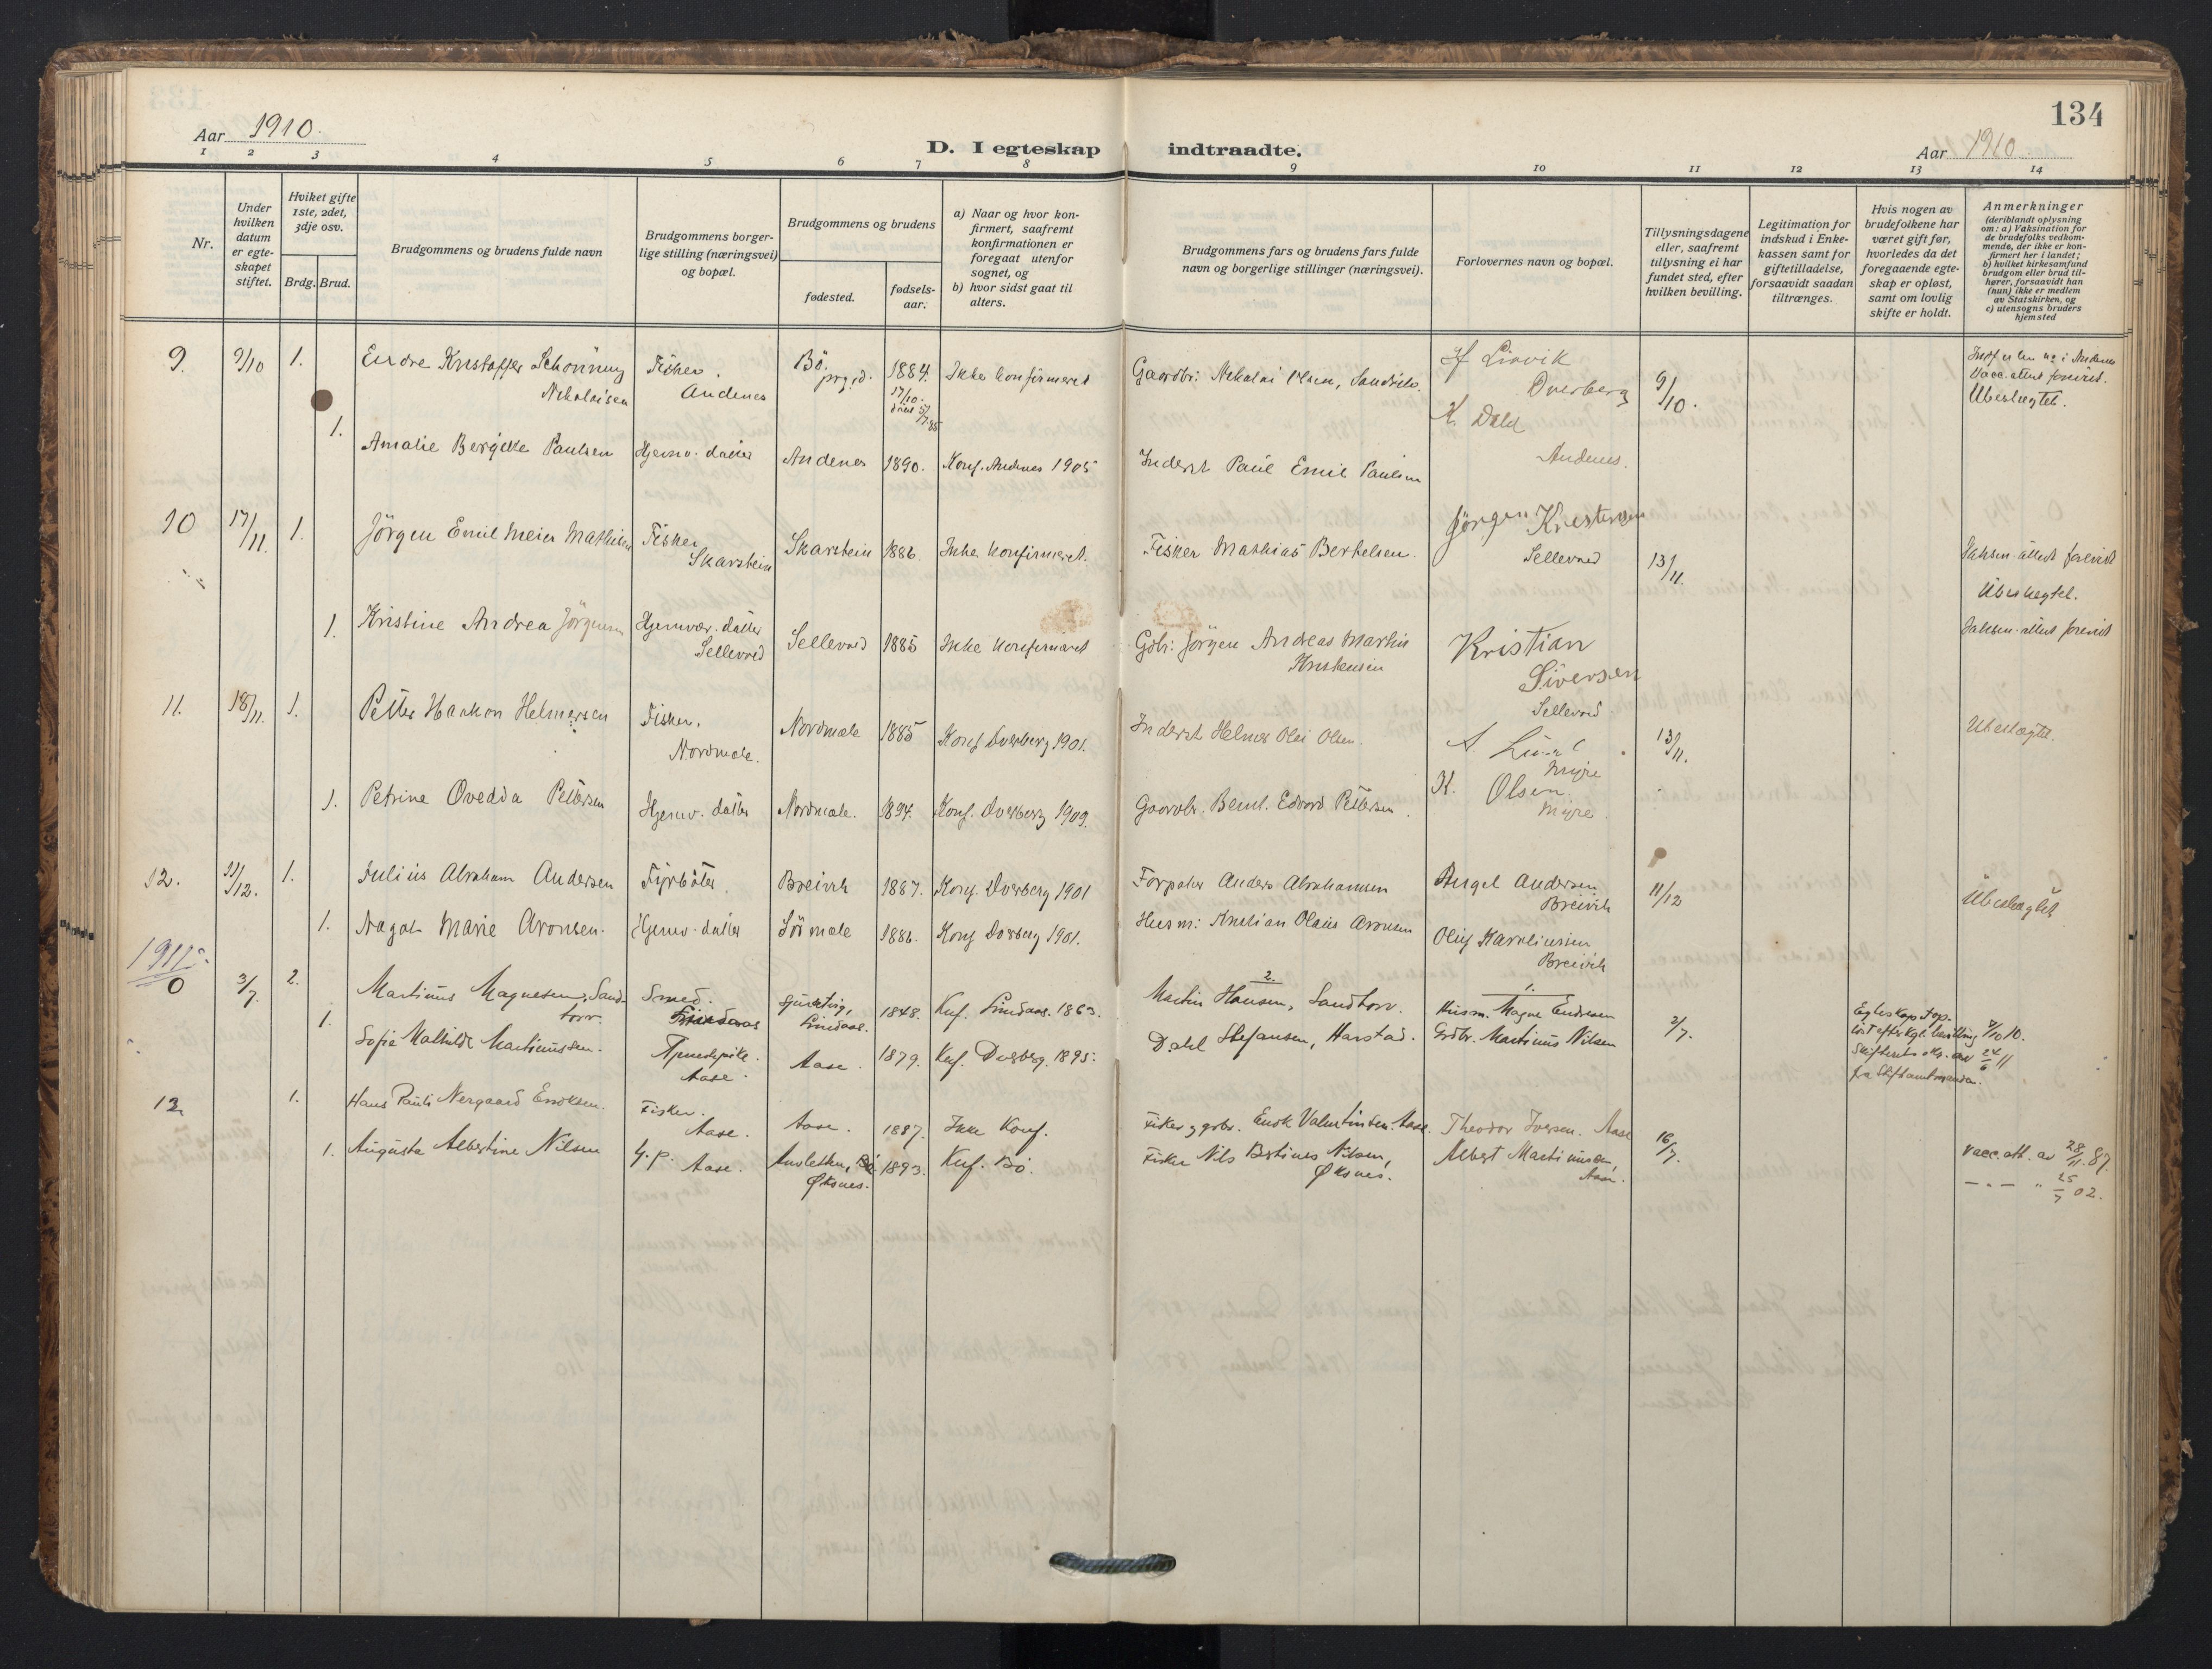 134
Aar 1910.
D. I egteskap indtraadte.
Aar 1910
1 2 3 4 5 6 7 8 9 10 11 12 13 14
Nr.
Under
hvilken
datum
er egte-
skapet
stiftet.
Hviket gifte
1ste, 2det,
3dje osv.
Brdg. Brud.
Brudgommens og brudens fulde navn
Brudgommens borger-
lige stilling (næringsvei)
og bopæl.
Brudgommens og brudens
fødested.
fødsels-
aar.
a) Naar og hvor kon-
firmert, saafremt
konfirmationen er
foregaat utenfor
sognet, og
b) hvor sidst gaat til
alters.
Brudgommens fars og brudens fars fulde
navn og borgerlige stillinger (næringsvei).
Forlovernes navn og bopæl.
Tillysningsdagene
eller, saafremt
tillysning ei har
fundet sted, efter
hvilken bevilling.
Legitimation for
indskud i Enke-
kassen samt for
giftetilladelse,
forsaavidt saadan
tiltrænges.
Hvis nogen av
brudefolkene har
været gift før,
hvorledes da det
foregaaende egte-
skap er opløst,
samt om lovlig
skifte er holdt.
Anmerkninger
(deriblandt oplysning
om: a) Vaksination for
de brudefolks vedkom-
mende, der ikke er kon-
firmert her i landet;
b) hvilket kirkesamfund
brudgom eller brud til-
hører, forsaavidt han
(hun) ikke er medlem
av Statskirken, og
c) utensogns bruders
hjemsted
9. 9/10 1. Endre Kristoffer Schönning
Nikolaisen
Fisker.
Andenes
Bö.
prgjd.
1884.
17/10.
Ikke konfirmeret
Gaardbr: Nikolai Olsen,
Dverberg
K. Dahl
Andenes.
9/10.
Vacc. attest forevist.
Ubeslegtet.
1. Amalie Bergitte Paulsen Hjemv. datter Andenes 1890. Konf. Andenes 1905 Inderst Paul Emil Paulsen
10 17/11. 1. Jörgen Emil Meier Mathisen Fisker
Skarstein
Skarstein 1886. Ikke konfirmeret. Fisker Mathias Bertelsen.
Jörgen Kristensen
Sellevned
13/11.
Vaksen. attest forevist
Ubeslegtet.
1. Kristine Andrea Jörgensen Hjemvær. datter
Sellevned
Sellevned 1885 Ikke konfirmeret Gdbr: Jörgen Andreas Martin
Kristensen
Kristian
Siversen
Sellevned.
Vaksen. attest forevist
11. 18/11. 1. Petter Haakon Helmersen Fisker.
Nordmele.
Nordmele 1885 Konf Dverberg 1901. Inderst Helmer Olai Olsen.
A. Lund
Myre
13/11.
Ubeslegtet.
1. Petrine Ovedia Pettersen Hjemv. datter Nordmele. 1894. Konf. Dverberg 1909. Gaardbr. Bernt. Edvard Pettersen.
K. Olsen
Myre.
12. 11/12. 1. Julius Abraham Andersen Fyrböter. Breivik 1887. Konf. Dverberg 1901 Forpakter Anders Abrahamsen
Angel Andersen
Breivik
11/12
Ubeslegtet
1. Dagot Marie Aronsen. Hjemv. datter Sörmele 1886. Konf Dverberg 1901. Husm: Kristian Olaus Aronsen
Oluf Karoliussen
Breivik
1911:
0 3/7. 2. Martinus Magnesen, Sand-
torv.
Smed.
Lindaas.
1848. Knf. Lindaas. 1863.
2.
Martin Hansen, Sandtorv.
1.
Husm. Magne Endresen
2/7.
Egteskapet op-
löst efter kgl. bevilling 7/10 10.
Skifterets skr. av 24/6 11
fra Stiftamtmanden.
1. Sofie Mathilde Martinussen. Tjenestepike.
Aase.
Aase. 1879. Knf. Dverberg. 1895. Dahl Stefansen, Harstad. Grdbr. Martinus Nilsen
12. 1. Hans Pauli Nergaard Enoksen. Fisker.
Aase.
Aase. 1887. Ikke Konf. Fisker og grbr. Enok Valentinsen. Aase. Theodor Iversen. Aase
16/7.
vacc. att. av 28/11. 87.
1. Augusta Albertine Nilsen G. p. Aase.
Øksnes.
1893. Knf. Bö. Fisker Nils Bertines Nilsen,
Øksnes.
Albert Martinusen,
Aase.
— " — " 25/7 02.